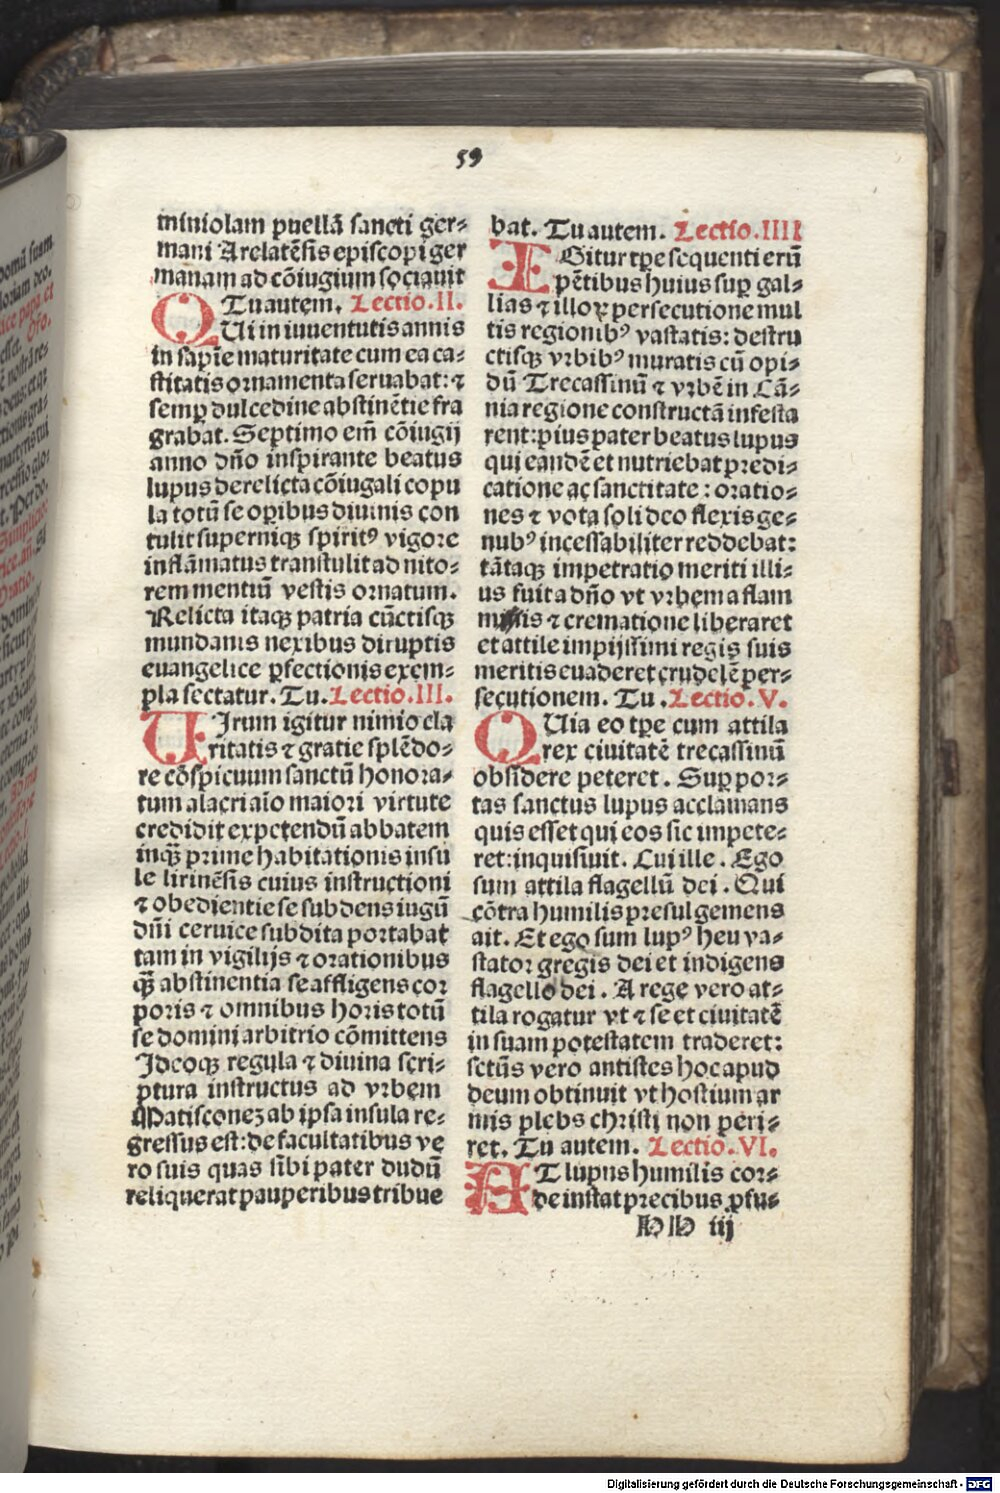 59
miniolam puellã sancti ger⸗
mani Arelatẽsis episcopi ger
manam ad cõiugium sociauit
Tu autem. Lectio.II.
QUi in iuuentutis annis
in sapiẽ maturitate cum ea ca⸗
stitatis ornamenta seruabat: ⁊
semꝑ dulcedine abstinẽtie fra
grabat. Septimo em̃ cõiugij
anno dño inspirante beatus
lupus derelicta cõiugali copu
la totũ se oꝑibus diuinis con
tulit supernisqꝫ spiritꝰ vigore
inflãmatus transtulit ad nito⸗
rem mentium vestis ornatum.
Relicta itaqꝫ patria cũctisqꝫ
mundanis nexibus diruptis
euangelice ꝑfectionis exem⸗
pla sectatur. Tu. Lectio.III.
UIrum igitur nimio cla
ritatis ⁊ gratie splẽdo⸗
re cõspicuum sanctũ honora⸗
tum alacri aĩo maiori virtute
credidit expetendũ abbatem
inqꝫ prime habitationis insu
le lirinẽsis cuius instructioni
⁊ obedientie se subdens iugũ
dñi ceruice subdita portabat
tam in vigilijs ⁊ orationibus
qꝫ̃ abstinentia se affligens cor
poris ⁊ omnibus horis totũ
se domini arbitrio cõmittens
Ideoqꝫ regula ⁊ diuina scri⸗
ptura instructus ad vrbem
Matisconeꝫ ab ipsa insula re⸗
gressus est: de facultatibus ve
ro suis quas sibi pater dudũ
reliquerat pauperibus tribue
bat. Tu autem. Lectio.IIII
IGitur tꝑe sequenti erũ
pẽtibus huius suꝑ gal⸗
lias ⁊ illoꝝ persecutione mul
tis regionibꝰ vastatis: destru
ctisqꝫ vrbibꝰ muratis cũ opi⸗
dũ Trecassinũ ⁊ vrbẽ in Cã⸗
nia regione constructã infesta
rent: pius pater beatus lupus
qui eandẽ et nutriebat predi⸗
catione ac sanctitate: oratio⸗
nes ⁊ vota soli deo flexis ge⸗
nubꝰ incessabiliter reddebat:
tãtaqꝫ impetratio meriti illi⸗
us fuit a dño vt vrbem a flam
missis ⁊ crematione liberaret
et attile impijssimi regis suis
meritis euaderet crudelẽ per⸗
secutionem. Tu. Lectio.V.
QUia eo tꝑe cum attila
rex ciuitatẽ trecassinũ
obsidere peteret. Suꝑ por⸗
tas sanctus lupus acclamans
quis esset qui eos sic impete⸗
ret: inquisiuit. Cui ille. Ego
sum attila flagellũ dei. Qui
cõtra humilis presul gemens
ait. Et ego sum lupꝰ heu va⸗
stator gregis dei et indigens
flagello dei. A rege vero at⸗
tila rogatur vt ⁊ se et ciuitatẽ
in suam potestatem traderet:
sctũs vero antistes hoc apud
deum obtinuit vt hostium ar
mis plebs christi non peri⸗
ret. Tu autem. Lectio.VI.
AT lupus humilis cor⸗
de instat precibus ꝓfu⸗
HH iij
Digitalisierung gefördert durch die Deutsche Forschungsgemeinschaft - DFG